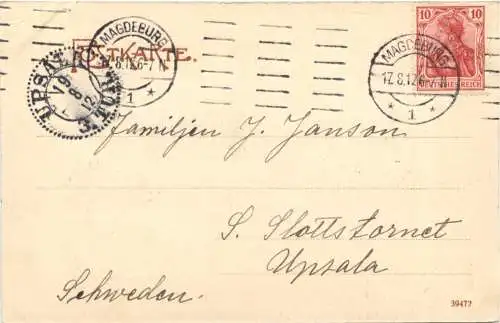 POSTKARTE.
MAGDEBURG
17.8.12.6-7 N
* 1 *
MAGDEBURG
17.8.12.6-7 N
* 1 *
10 10
DEUTSCHES REICH
UPSALA
19
8
12
Familjen J. Janson
S. Slottstornet
Upsala
Schweden.
39477